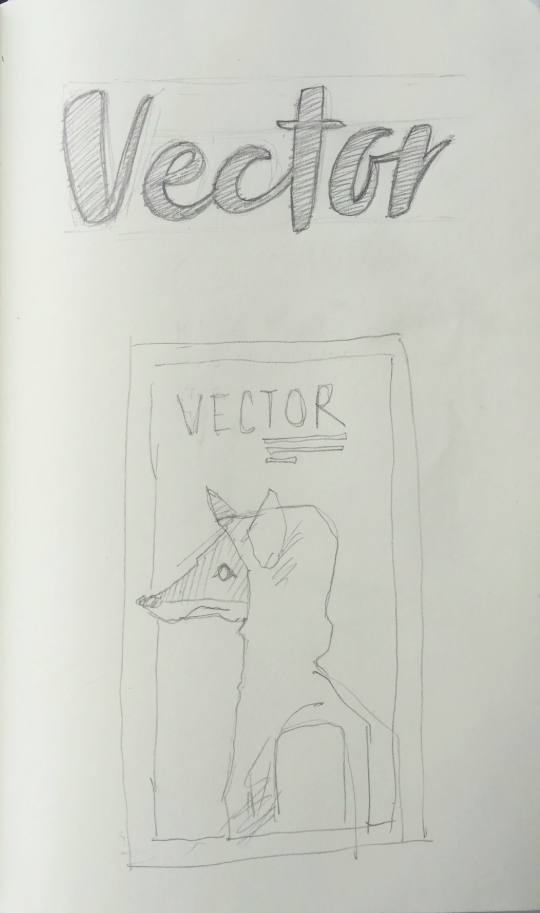 Vector
VECTOR